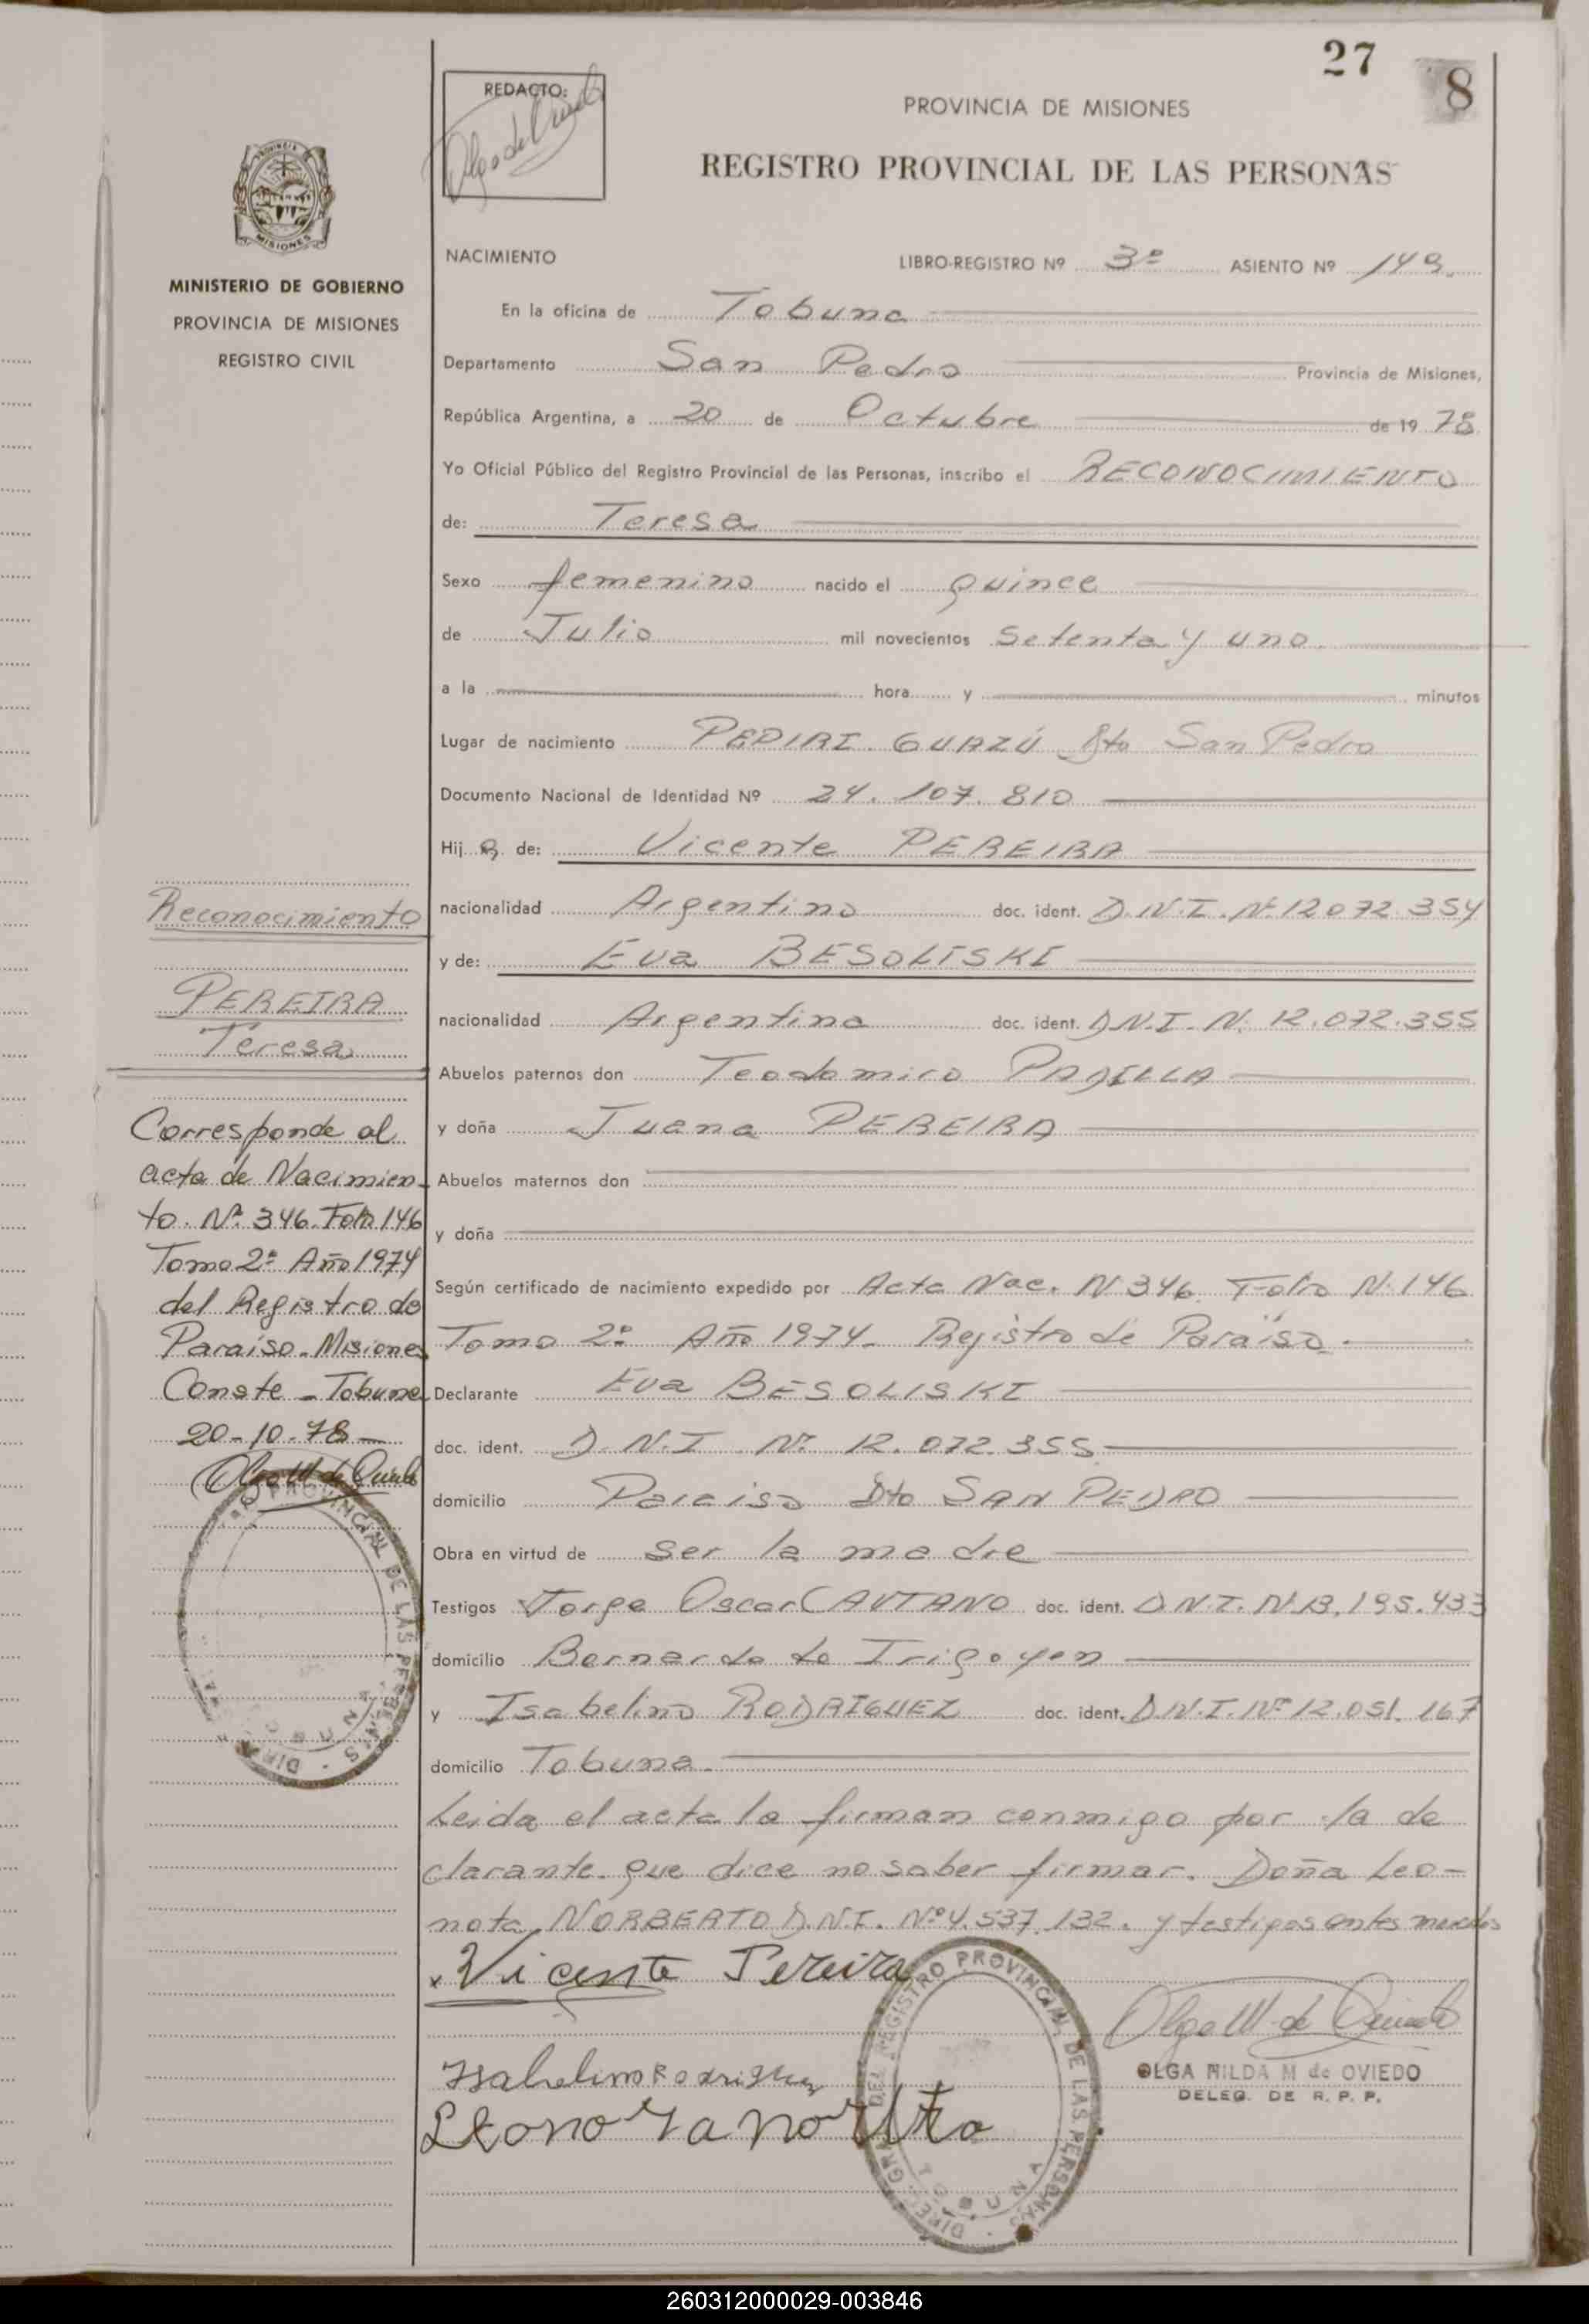 27
8
REDACTO:
PROVINCIA DE MISIONES
REGISTRO PROVINCIAL DE LAS PERSONAS
MINISTERIO DE GOBIERNO
PROVINCIA DE MISIONES
REGISTRO CIVIL
NACIMIENTO LIBRO-REGISTRO Nº 3º ASIENTO Nº 149.
En la oficina de Tobuna
Departamento San Pedro Provincia de Misiones,
República Argentina, a 20 de Octubre de 19 78
Yo Oficial Público del Registro Provincial de las Personas, inscribo el RECONOCIMIENTO
de: Teresa
Sexo femenino nacido el quince
de Julio mil novecientos Setenta y uno.
a la hora y minutos
Lugar de nacimiento PEPIRI GUAZÚ Dto San Pedro
Documento Nacional de Identidad Nº 24.107.810
Hij a de: Vicente PEREIRA
nacionalidad Argentino doc. ident. D.N.I. Nº 12072.354
y de: Eva BESOLISKI
nacionalidad Argentina doc. ident. D.N.I. N. 12.072.355
Abuelos paternos don Teodomiro PADILLA
y doña Juana PEREIRA
Abuelos maternos don
y doña
Según certificado de nacimiento expedido por Acta Nac. N. 346. Folio N. 146
Tomo 2º Año 1974- Registro de Paraiso.
Declarante Eva BESOLISKI
doc. ident. D.N.I Nº 12.072.355
domicilio Paraiso Dto SAN PEDRO
Obra en virtud de Ser la madre
Testigos Jorge Oscar CAVTANO doc. ident. D.N.I. N. 13.195.433
domicilio Bernardo de Irigoyen
y Isabelino RODRIGUEZ doc. ident. D.N.I. Nº 12.051.167
domicilio Tobuna.
Leida el acta la firman conmigo por la de
clarante que dice no saber firmar. Doña Leo-
nora NORBERTO D.N.I. Nº 4.537.132. y testigos antes
Vicente Pereira
Isabelino Rodriguez
Leonora
OLGA NILDA M de OVIEDO
DELEG. DE R. P. P.
DIREC. GRAL. DEL REGISTRO PROVINCIAL DE LAS PERSONAS
TOBUNA
Reconocimiento
PEREIRA
Teresa
Corresponde al
acta de Nacimien
to. Nº 346. Folio 146
Tomo 2º Año 1974
del Registro de
Paraiso-Misiones
Conste - Tobuna
20-10-78-
PROVINCIAL DE LAS PERSONAS
260312000029-003846